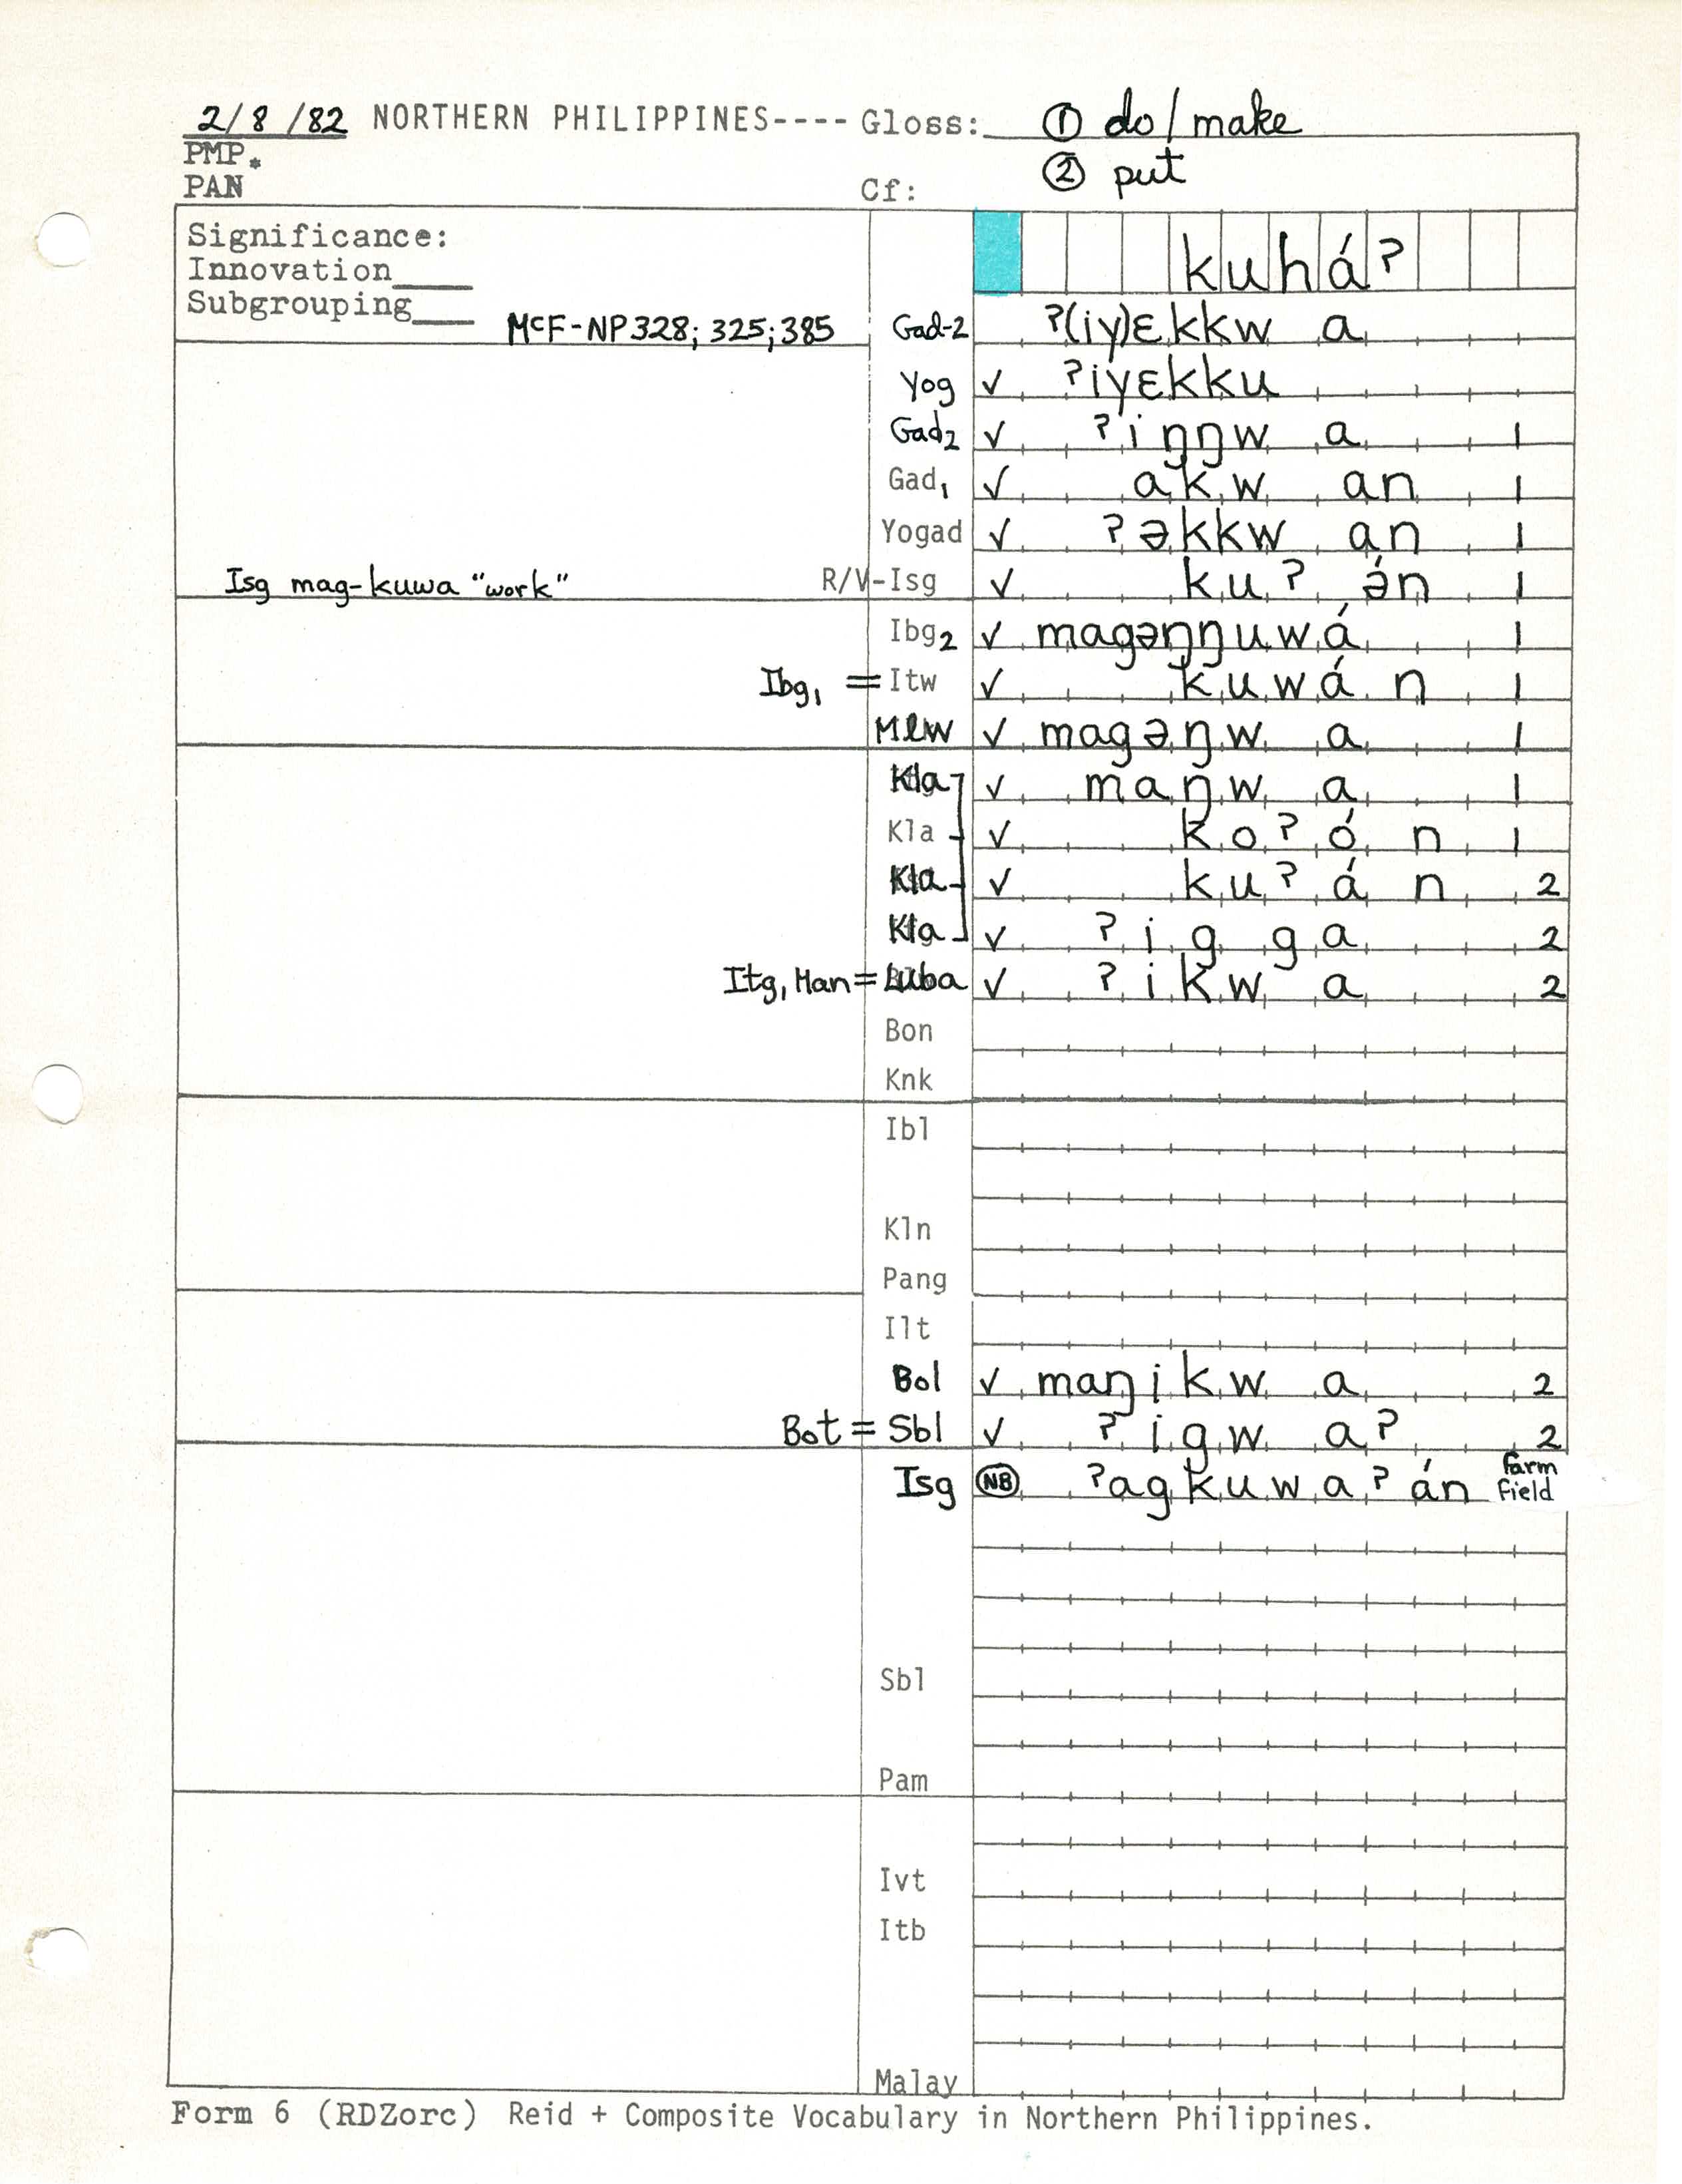 2/8/82 NORTHERN PHILIPPINES---- Gloss: ① do/make
PMP*
PAN Cf: ② put
Significance: kuháʔ
Innovation____
Subgrouping____ McF-NP 328; 325; 385
Gad-2 ʔ(iy)ɛkkw a
Yog ✓ ʔiyɛkku
Gad2 ✓ ʔiŋŋw a 1
Gad1 ✓ akw an 1
Yogad ✓ ʔəkkw an 1
Isg mag-kuwa "work" R/V-Isg ✓ kuʔ ə́n 1
Ibg2 ✓ magəŋŋuwá 1
Ibg1 = Itw ✓ kuwá n 1
Mlw ✓ magəŋw a 1
Kla ✓ maŋw a 1
Kla ✓ koʔó n 1
Kla ✓ kuʔá n 2
Kla ✓ ʔig ga 2
Itg, Man = Luba ✓ ʔikw a 2
Bon
Knk
Ibl
Kln
Pang
Ilt
Bol ✓ maŋikw a 2
Bot = Sbl ✓ ʔigw aʔ 2
Isg NB ʔagkuwaʔán farm field
Sbl
Pam
Ivt
Itb
Malay
Form 6 (RDZorc) Reid + Composite Vocabulary in Northern Philippines.